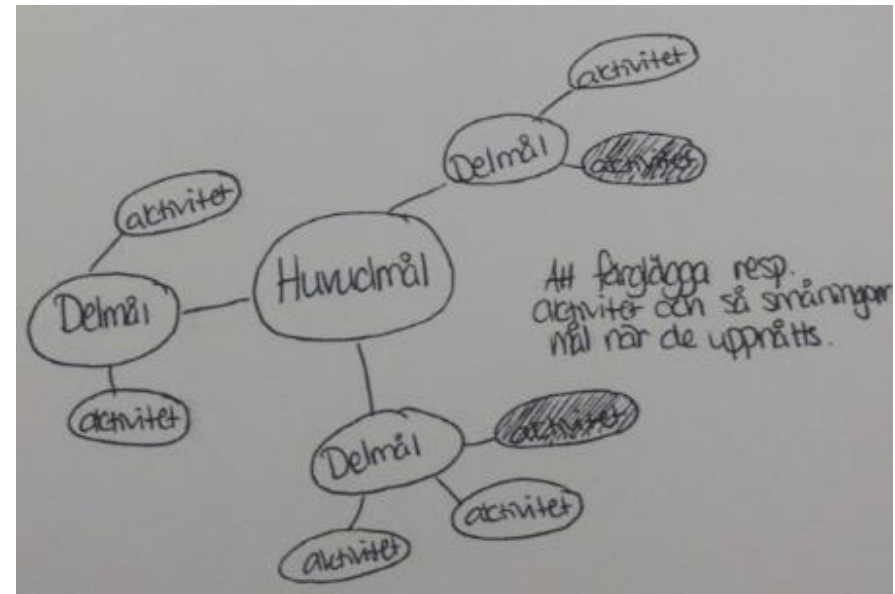 aktivitet
Delmål
aktivitet
aktivitet
Huvudmål
Delmål
aktivitet
Att färglägga resp.
aktivitet och så småningom
mål när de uppnåtts.
aktivitet
Delmål
aktivitet
aktivitet
aktivitet